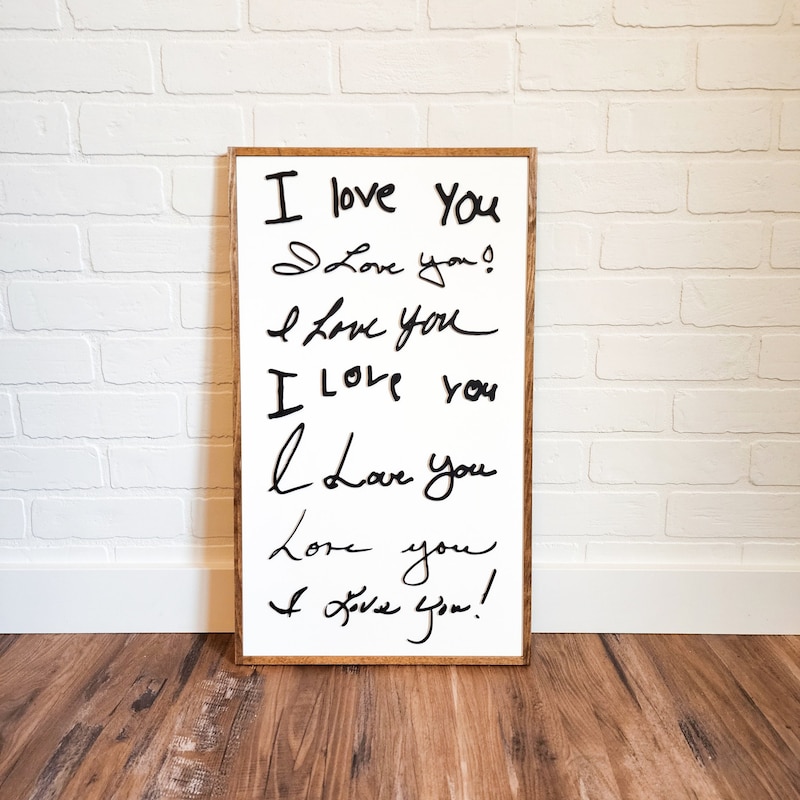 I love you
I Love you!
I Love you
I LOVe You
I Love you
Love you
I Love You!